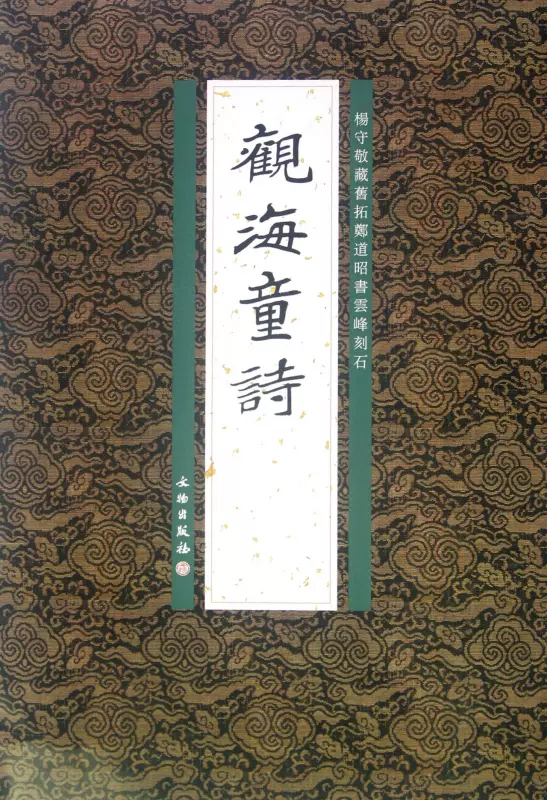 楊守敬藏舊拓鄭道昭書雲峰刻石
觀海童詩
文物出版社